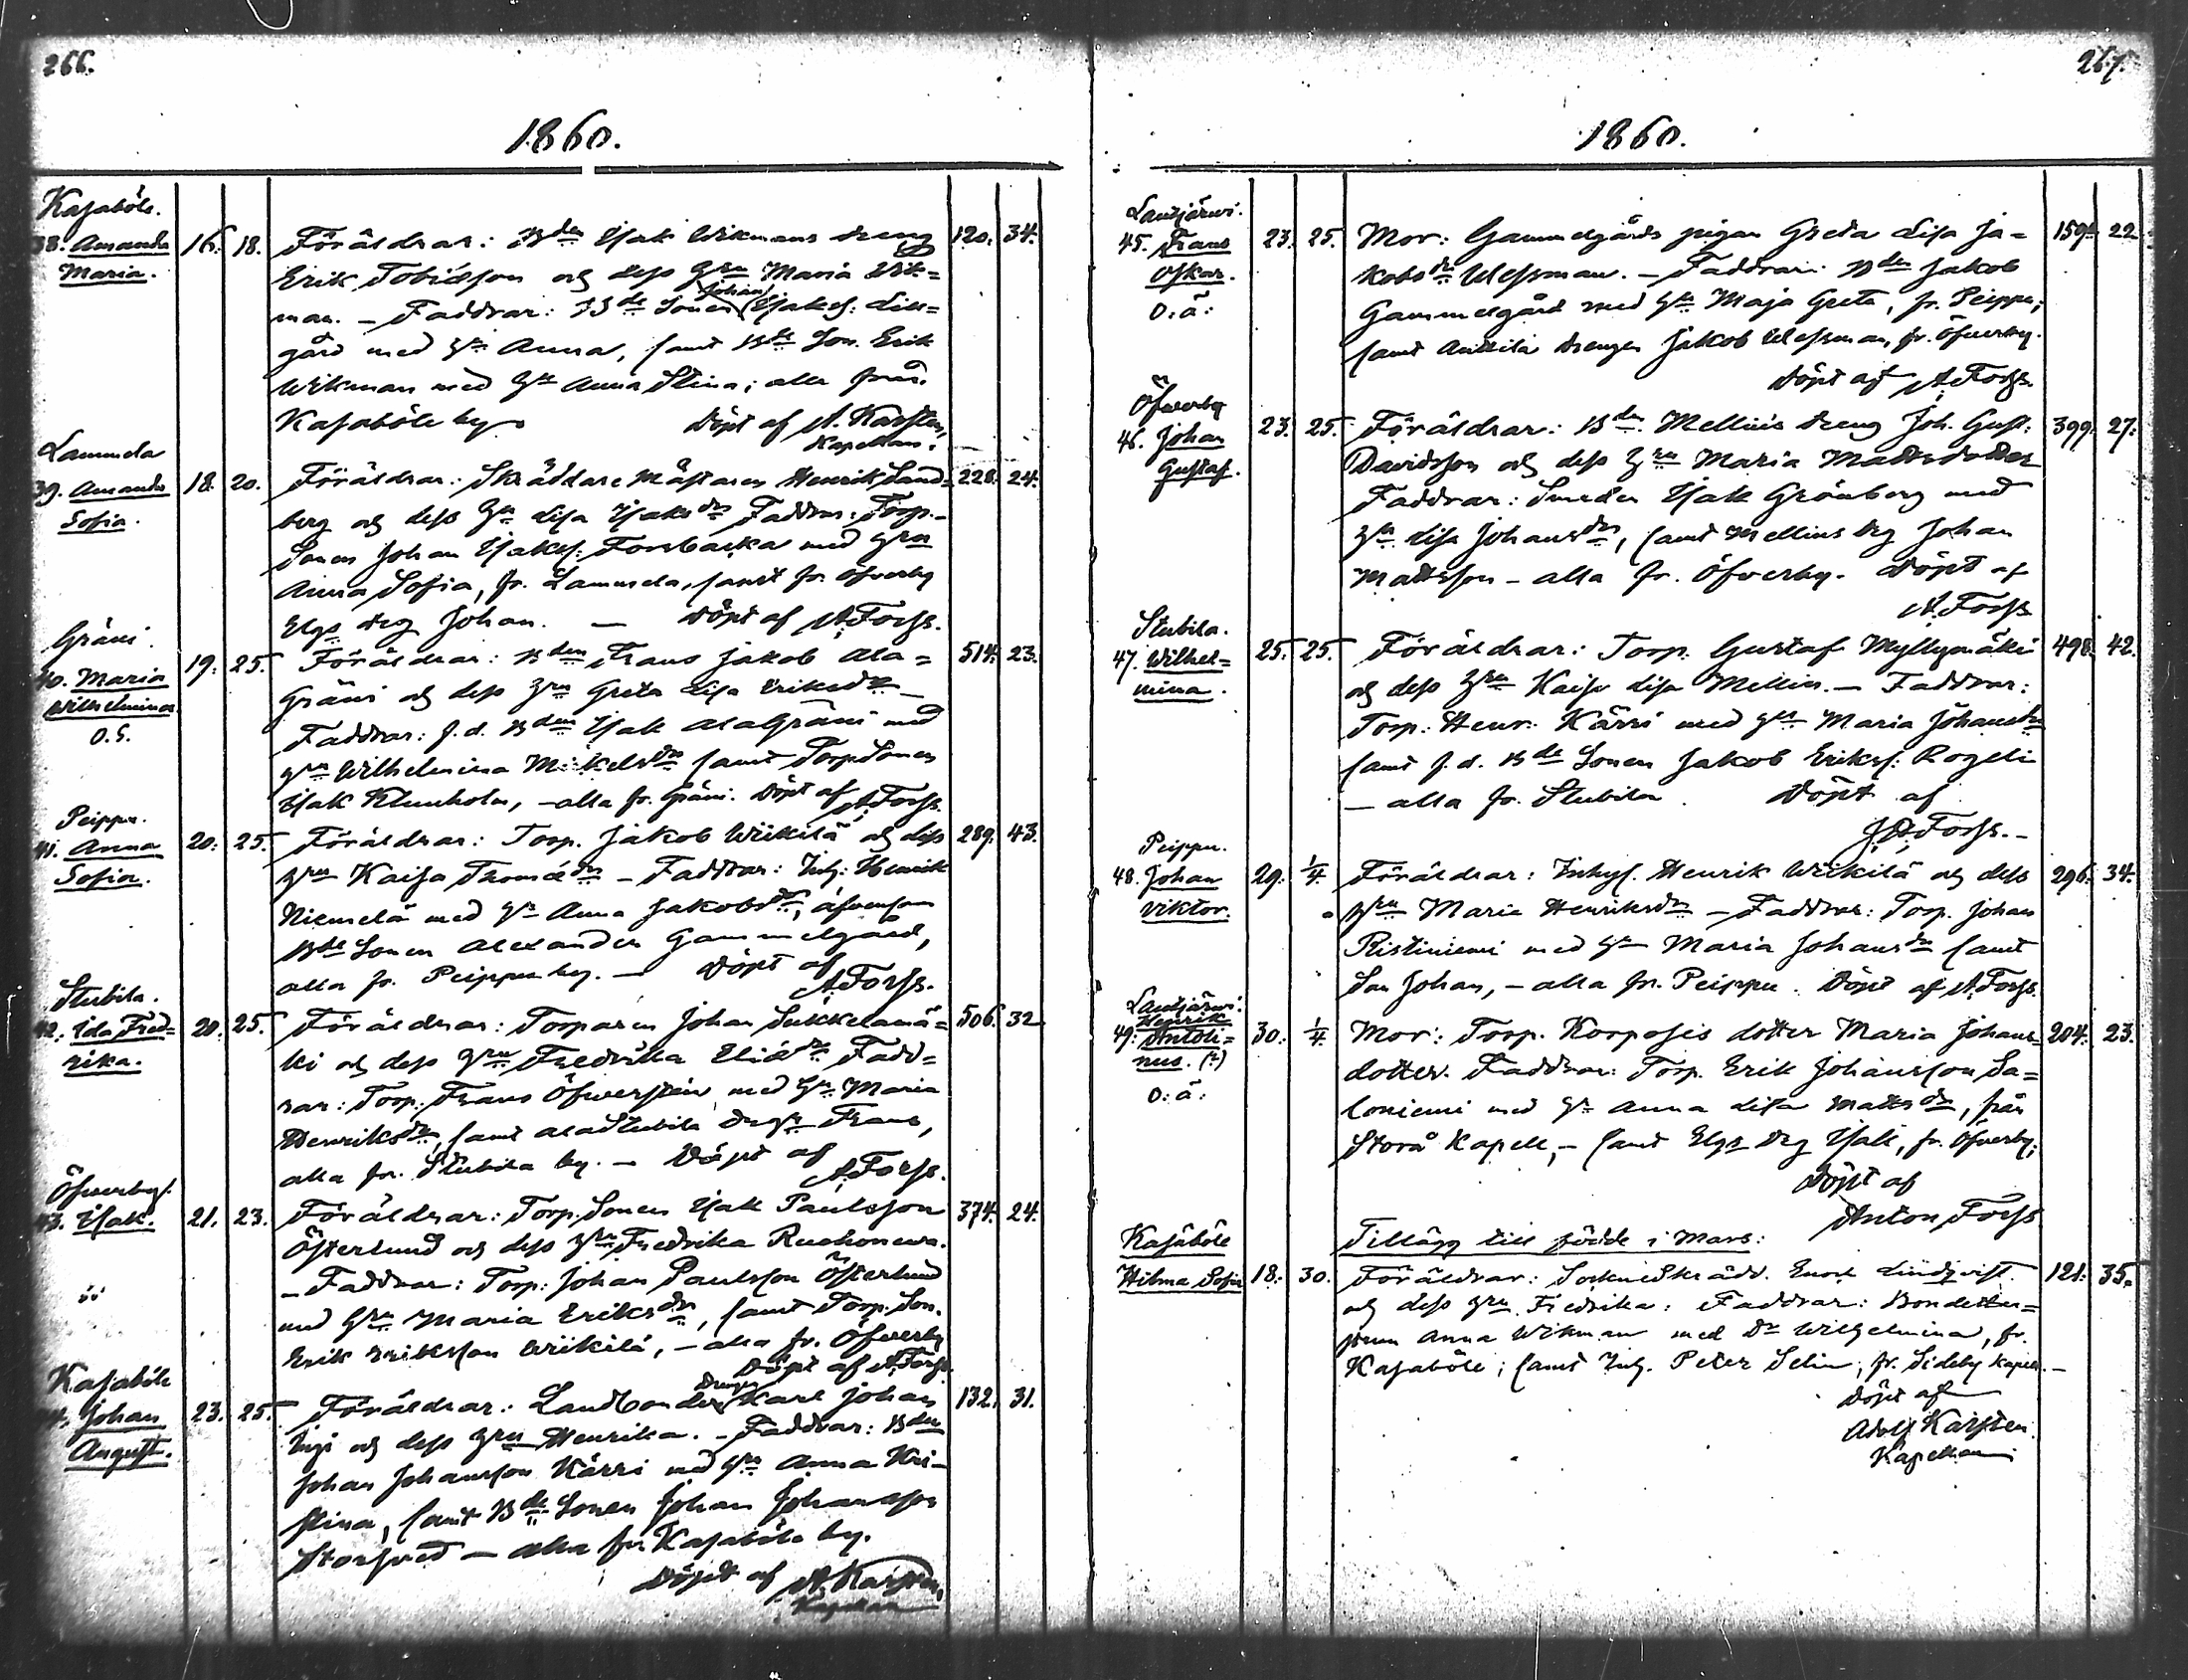 266.
1860.
Kasaböle.
38. Amanda
Maria.
16. 18.
Föräldrar: Bden Isak Wikmans dreng
120. 34.
Erik Tobiasson och dess Hru Maria Wik=
man. – Faddrar: Bde Sonen Johan Isaks: Lill=
gård med H. Anna, samt Bde Son. Erik
Wikman med H. Anna Stina; alla från
Kasaböle by.
Döpt af A. Karsten,
Kapellan.
Lammela
39. Amanda
Sofia.
18. 20.
Föräldrar: Skräddare Mästaren Henrik Sand=
228. 24.
berg och dess Hru Lisa Isaksdr Faddrar: Torp.-
Sonen Johan Isaks: Forsbacka med Hru
Anna Sofia, fr. Lammela, samt fr. Öfverby
Elgs drg Johan. — Döpt af A. Forss.
Gräni.
40. Maria
Wilhelmina
O.S.
19. 25.
Föräldrar: Bden Frans Jakob Ala=
514. 23.
Gräni och dess Hru Greta Lisa Eriksdr –
Faddrar: f.d. Bden Isak AlaGräni med
Hru Wilhelmina Mickelsdr samt TorpSonen
Isak Klunholm, – alla fr. Gräni. Döpt af A. Forss.
Peippu.
41. Anna
Sofia.
20. 25.
Föräldrar: Torp. Jakob Wiikilä och dess
289. 43.
Hru Kaisa Thomædr – Faddrar: Inh: Henrik
Niemelä med H. Anna Jakobsdr, äfvensom
Bde Sonen Alexander Gammelgård,
alla fr. Peippu by. — Döpt af
A. Forss.
Stubila.
42. Ida Fred=
rika.
20. 25.
Föräldrar: Torparen Johan Sukkelamä=
506. 32
ki och dess Hru Fredrika Eliædr Fadd=
rar: Torp. Frans Öfwersten med Hru Maria
Henriksdr, samt AlaStubila Drgn Frans,
alla fr. Stubila by. – Döpt af
A. Forss.
Öfverby.
43. Isak.
21. 23.
Föräldrar: Torp. Sonen Isak Paulsson
374. 24.
Österlund och dess Hru Fredrika Ruohoneva.
– Faddrar: Torp: Johan Paulsson Österlund
med Hru Maria Eriksdr, samt Torp. Son.
Erik Eriksson Wiikilä, – alla fr. Öfverby
Döpt af A. Forss.
Kasaböle
44. Johan
August.
23. 25.
Föräldrar: Landbonden Drengen Karl Johan
132. 31.
och dess Hru Henrika. – Faddrar: Bden
Johan Johansson Kärri med Hru Anna Kri-
stina, samt Bde Sonen Johan Johansson
Storsved — alla fr. Kasaböle by.
Döpt af A. Karsten,
Kapellan
267.
1860.
Lautjärwi.
45. Frans
Oskar.
o.ä:
23. 25.
Mor: Gammelgårds pigan Greta Lisa Ja=
159. 22
kobsdr Wessman. – Faddrar: Bden Jakob
Gammelgård med H. Maja Greta, fr. Peippu;
samt Anttila drengen Jakob Wessman, fr. Öfverby.
Döpt af A. Forss.
Öfwerby
46. Johan
Gustaf.
23. 25.
Föräldrar: Bden Mellins dreng Joh. Gust:
399. 27.
Davidsson och dess Hru Maria Mattsdotter
Faddrar: Smeden Isak Grönberg med
H. Lisa Johansdr, samt Mellins drg Johan
Mattsson – alla fr. Öfverby. Döpt af
A. Forss
Stubila.
47. Wilhel=
mina.
25. 25.
Föräldrar: Torp. Gustaf Myllymäki
498. 42.
och dess Hru Kaisa Lisa Mellin. – Faddrar:
Torp: Henr: Kärri med Hru Maria Johansdr
samt f.d. Bde Sonen Jakob Eriks: Rogeli
– alla fr. Stubila. Döpt af
A. Forss. –
Peippu.
48. Johan
Viktor.
29. 1/4.
Föräldrar: Inhys. Henrik Wiikilä och dess
296. 34.
Hru Maria Henriksdr – Faddrar: Torp. Johan
Ristiniemi med H. Maria Johansdr samt
Son Johan, – alla fr. Peippu. Döpt af A. Forss.
Lautjärwi.
Henrik
49. Antoli=
nus. (?)
o.ä:
30. 1/4
Mor: Torp. Korposis dotter Maria Johans=
204. 23.
dotter. Faddrar: Torp. Erik Johansson Sa=
loniemi med H. Anna Lisa Mattsdr, från
Storå Kapell, – samt Elgs drg Isak, fr. Öfverby;
Döpt af
Anton Forss
Tillägg till födde i Mars:
Kasaböle
Hilma Sofia
18. 30.
Föräldrar: SockneSkrädd. Enok Lindqvist
121. 35.
och dess Hru Fredrika: Faddrar: Bondenker=
Anna Wikman med Dr Wilhelmina, fr.
Kasaböle; samt Inh. Peter Selin, fr. Sideby kapell. –
Döpt af
Adolf Karsten.
Kapellan